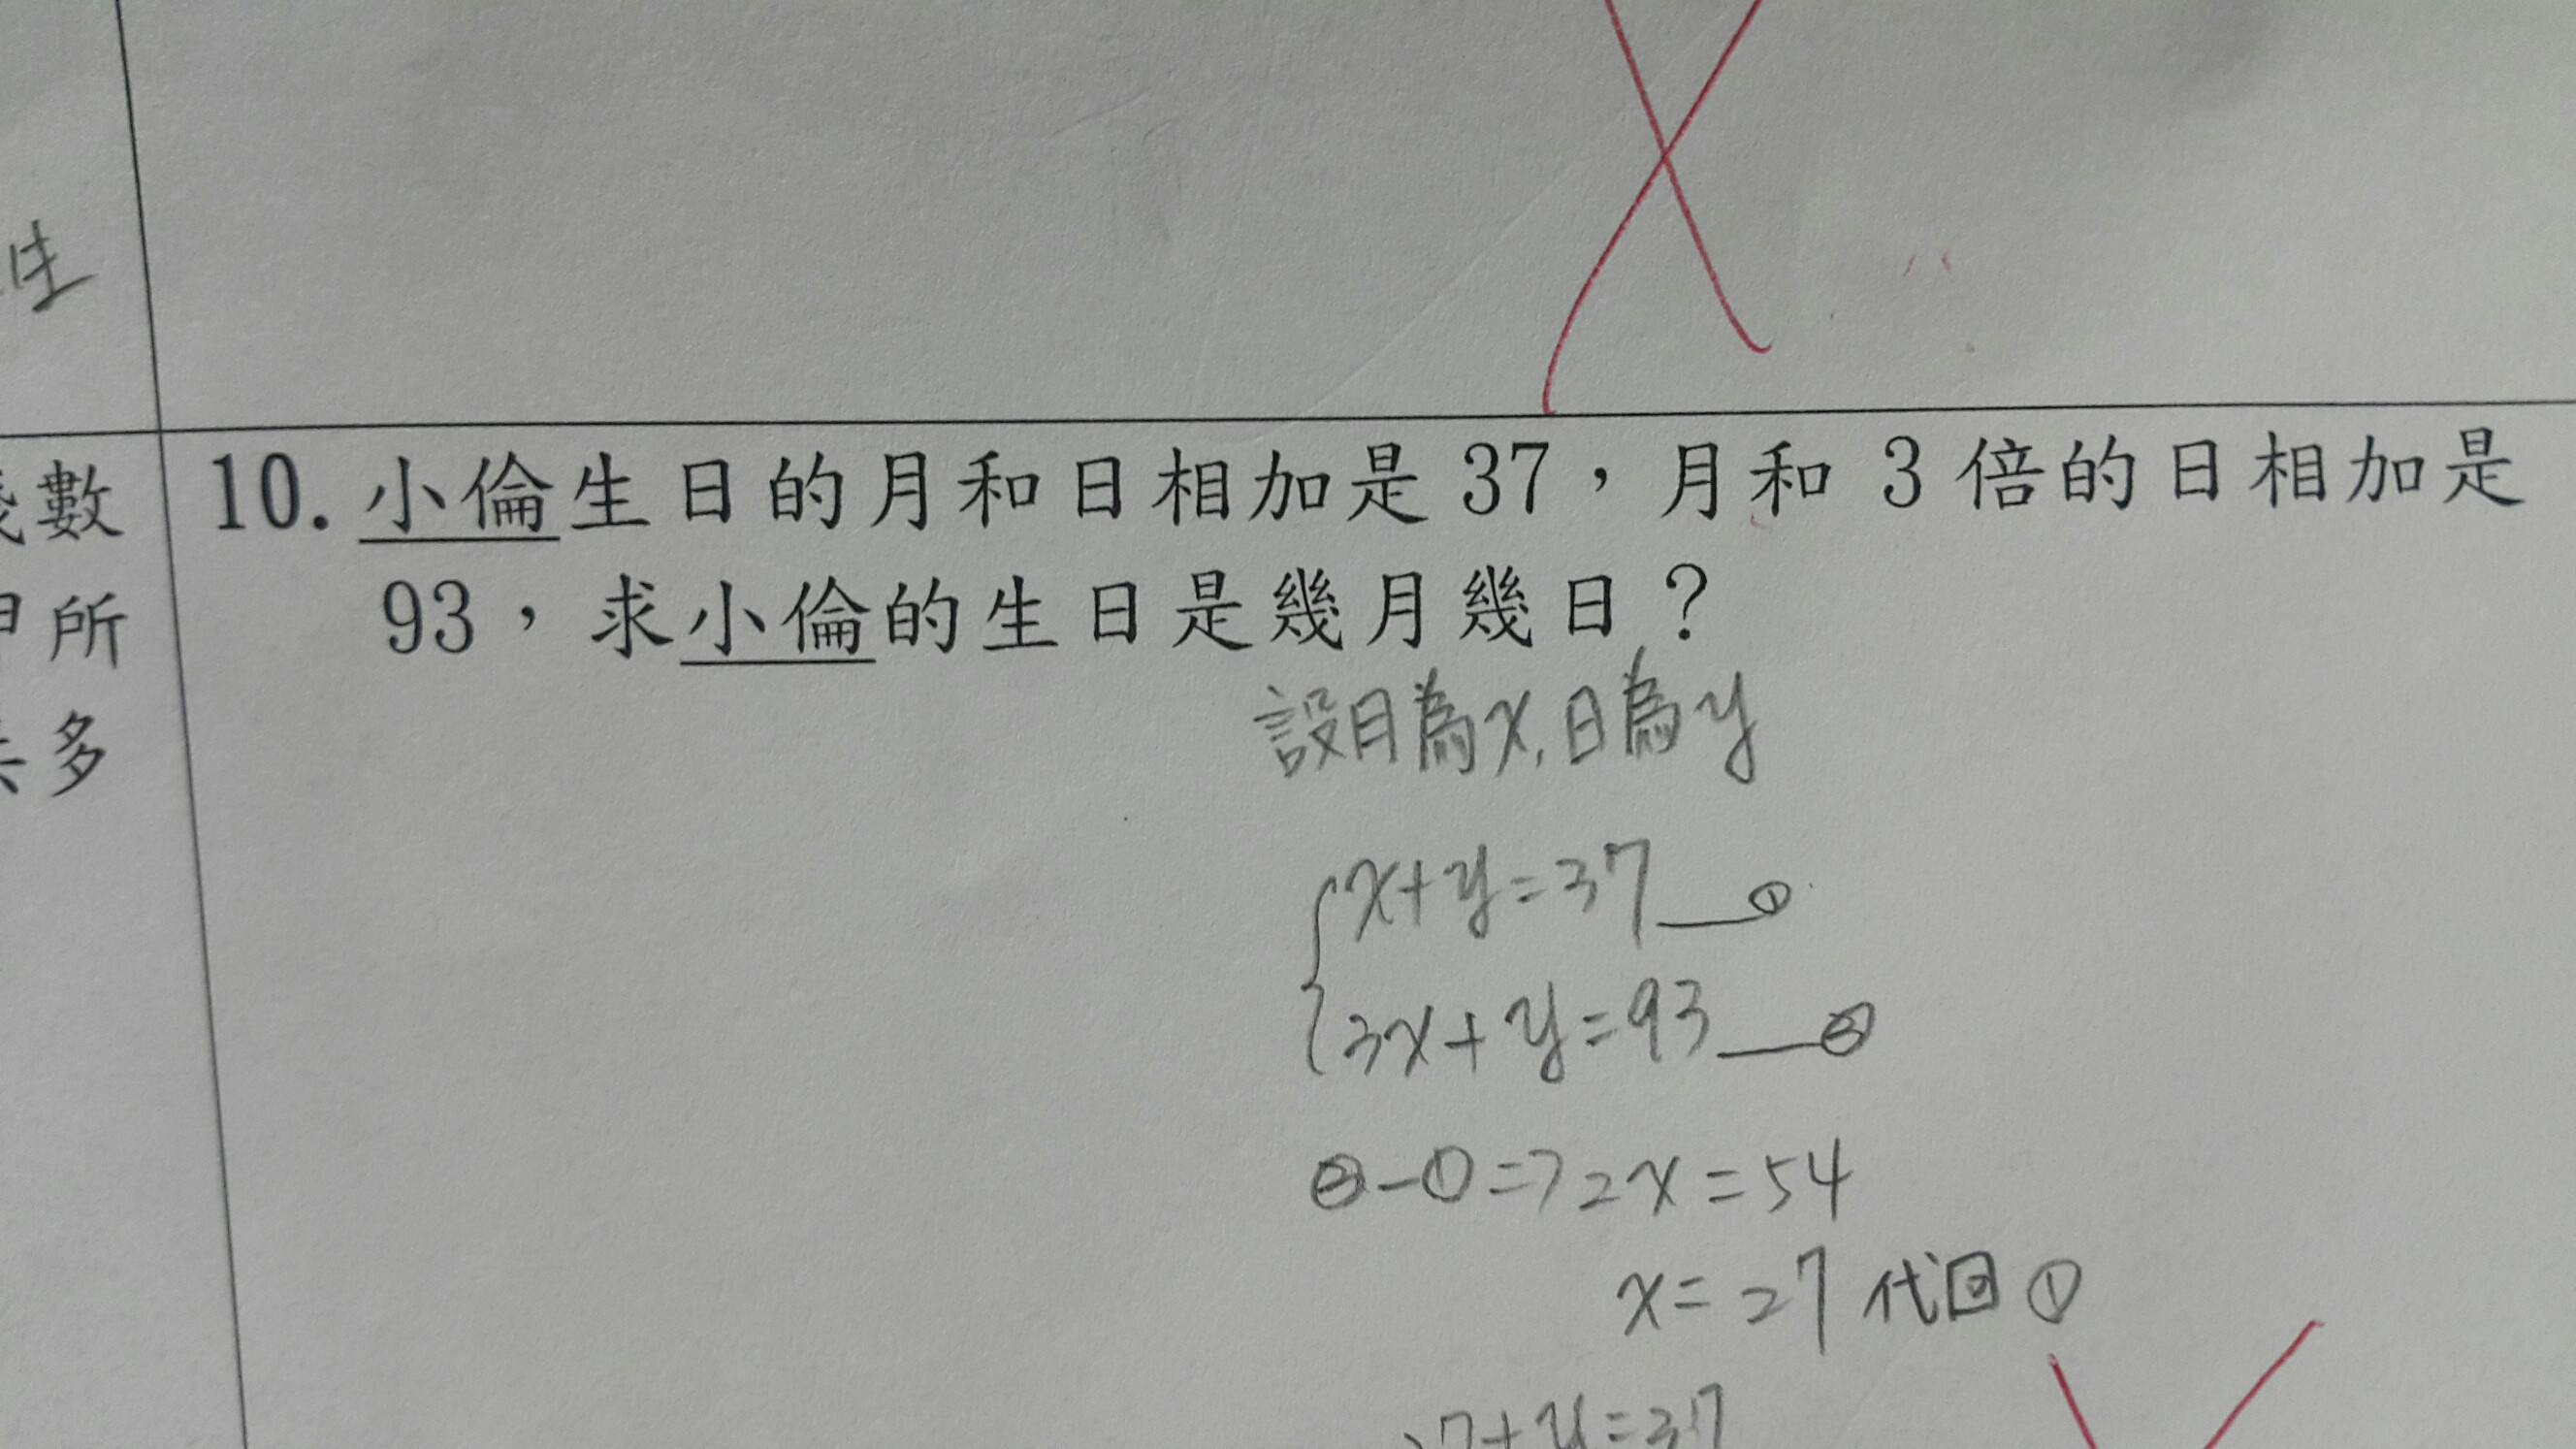 生
數
所
多
10. 小倫生日的月和日相加是 37，月和 3 倍的日相加是
93，求小倫的生日是幾月幾日？
設月為x, 日為y
x+y=37 — ①
3x+y=93 — ②
②-①=>2x=54
x=27 代回①
27+y=37